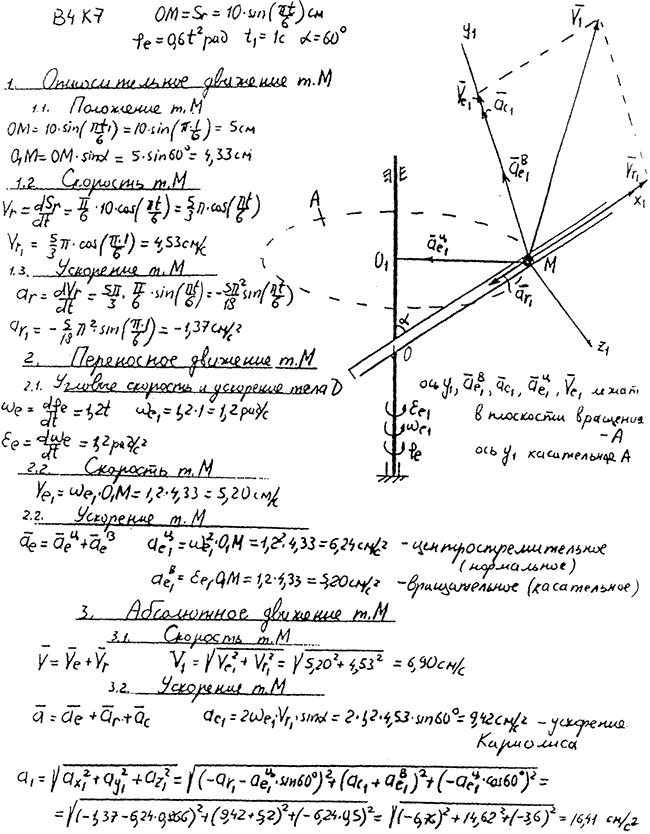 В4 К7 OM=Sr=10·sin(πt/6)см
φe=0,6t²рад t₁=1с α=60°
1. Относительное движение т.М
1.1. Положение т.М
OM=10·sin(πt₁/6)=10·sin(π·1/6)=5см
O₁M=OM·sinα=5·sin60°=4,33см
1.2. Скорость т.М
Vr=dSr/dt=π/6·10·cos(πt/6)=5/3π·cos(πt/6)
Vr₁=5/3π·cos(π·1/6)=4,53см/с
1.3. Ускорение т.М
ar=dVr/dt=-5π/3·π/6·sin(πt/6)=-5π²/18sin(πt/6)
ar₁=-5/18π²·sin(π·1/6)=-1,37см/с²
2. Переносное движение т.М
2.1. Угловые скорость и ускорение тела D
ωe=dφe/dt=1,2t ωe₁=1,2·1=1,2рад/с
εe=dωe/dt=1,2рад/с²
2.2. Скорость т.М
Ve₁=ωe₁·O₁M=1,2·4,33=5,20см/с
2.2. Ускорение т.М
āe=āeᶣ+āeᴮ ae₁ᶣ=ωe₁²·O₁M=1,2²·4,33=6,24см/с² - центростремительное
(нормальное)
ae₁ᴮ=εe₁O₁M=1,2·4,33=5,20см/с² - вращательное (касательное)
3. Абсолютное движение т.М
3.1. Скорость т.М
V̄=V̄e+V̄r V₁=√(Ve₁²+Vr₁²)=√(5,20²+4,53²)=6,90см/с
3.2. Ускорение т.М
ā=āe+ār+āc ac₁=2ωe₁Vr₁·sinα=2·1,2·4,53·sin60°=9,42см/с² - ускорение
Кариолиса
a₁=√(ax₁²+ay₁²+az₁²)=√((-ar₁-ae₁ᶣ·sin60°)²+(ac₁+ae₁ᴮ)²+(-ae₁ᶣ·cos60°)²)=
=√((-1,37-6,24·0,866)²+(9,42+5,2)²+(-6,24·0,5)²)=√((-6,76)²+14,62²+(-3,6)²)=16,41 см/с²
y₁
V̄₁
V̄e₁
āc₁
āe₁ᴮ
V̄r₁
x₁
E
A
O₁
āe₁ᶣ
M
ār₁
α
O
z₁
εe₁
ωe₁
φe
ось y₁, āe₁ᴮ, āc₁, āe₁ᶣ, V̄e₁ лежат
в плоскости вращения
-А
ось y₁ касательная А